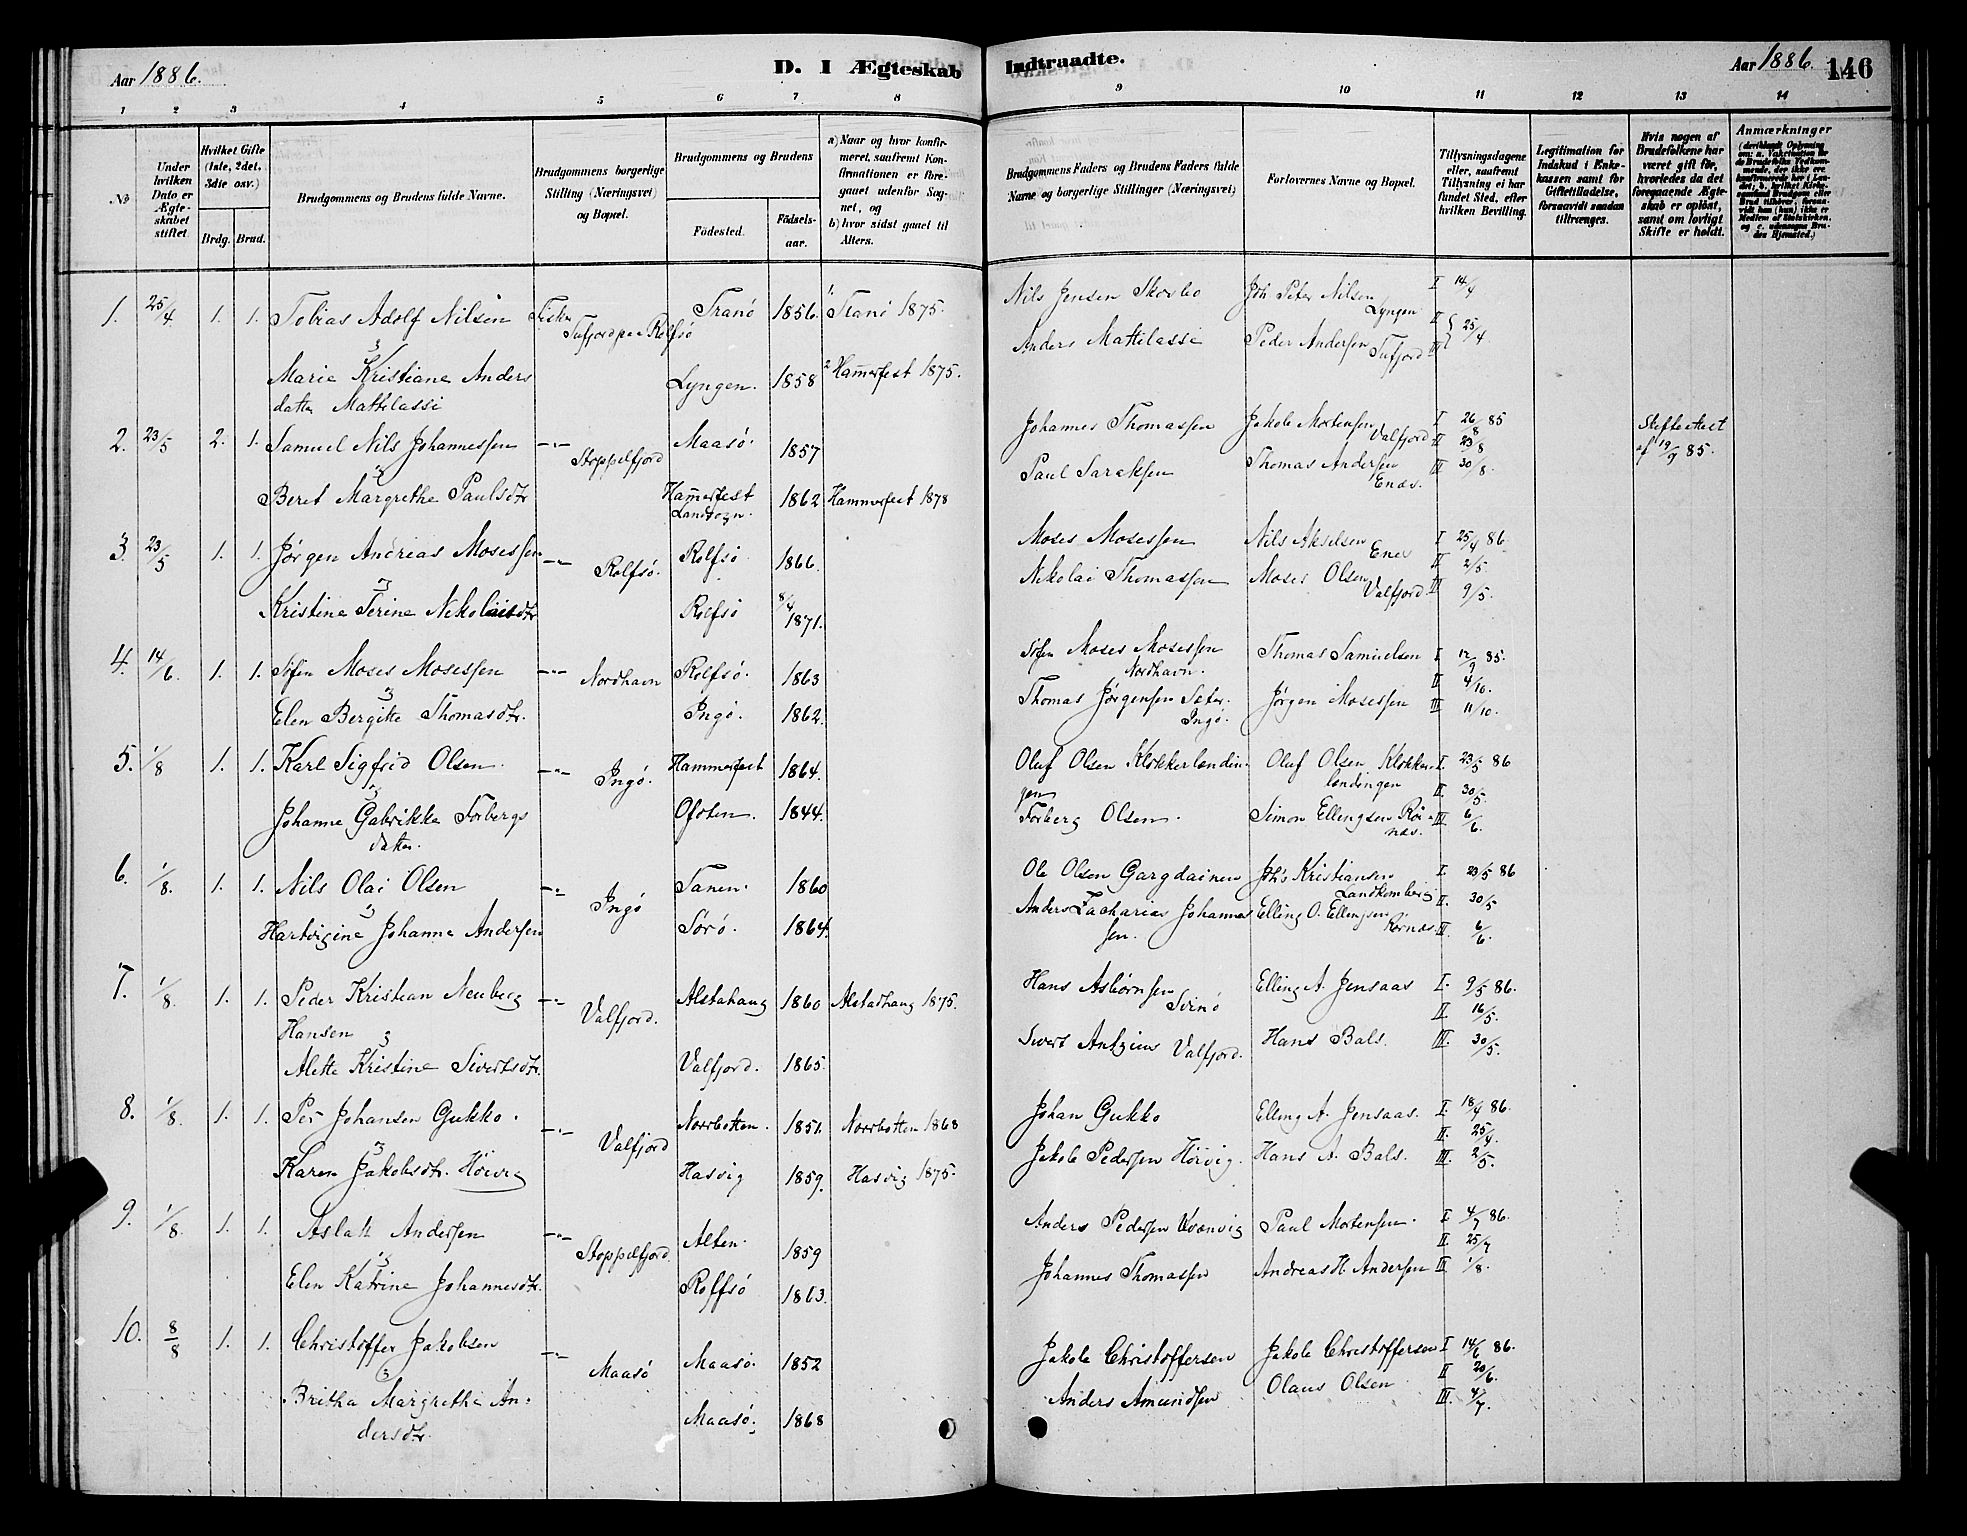 Aar 1886. D. I Ægteskab Indtraadte. Aar 1886. 146
1 2 3 4 5 6 7 8 9 10 11 12 13 14
No
Under hvilken Dato er Ægteskabet stiftet.
Hvilket Gifte (1ste, 2det, 3die osv.)
Brdg. Brud.
Brudgommens og Brudens fulde Navne.
Brudgommens borgerlige Stilling (Næringsvei) og Bopæl.
Brudgommens og Brudens
Födested. Födsels-aar.
a) Naar og hvor konfirmeret, saafremt Konfirmationen er foregaaet udenfor Sognet, og
b) hvor sidst gaaet til Alters.
Brudgommens Faders og Brudens Faders fulde Navne og borgerlige Stillinger (Næringsvei)
Forlovernes Navne og Bopæl.
Tillysningsdagene eller, saafremt Tillysning ei har fundet Sted, efter hvilken Bevilling.
Legitimation for Indskud i Enkekassen samt for Giftetilladelse, forsaavidt saadan tiltrænges.
Hvis nogen af Brudefolkene har været gift för, hvorledes da det foregaaende Ægteskab er oplöst, samt om lovligt Skifte er holdt.
Anmærkninger
1. 25/4 1. 1. Tobias Adolf Nilsen Fisker Tufjord paa Rolfsö Tranö 1856. 1 Tranö 1875. Nils Jensen Skorbo Joh Peter Nilsen Lyngen I 14/4
Marie Kristiane Anders
datter Mattilassi Lyngen. 1858 2 Hammerfest 1875. Anders Mattilassi Peder Andersen Tufjord II III 25/4.
2. 23/5 2. 1. Samuel Nils Johannessen -"- Stoppelfjord Maasö. 1857 Johannes Thomassen Jakob Mortensen Valfjord I 26/8 85 II 23/8 Skifteattest af 19/9 85.
Beret Margrethe Paulsdtr Hammerfest Landsogn. 1862 Hammerfest 1878 Paul Sarassen Thomas Andersen Enæs. III 30/8.
3. 23/5 1. 1. Jörgen Andreas Mosessen -"- Rolfsö. Rolfsö 1866. Moses Mosessen Nils Akselsen Enes I 25/4 86. II 2/5
Kristine Serine Nikolaisdtr Rolfsö 8/4 1871. Nikolai Thomassen Moses Olsen Valfjord. III 9/5.
4. 14/6 1. 1. Sofen Moses Mosessen -"- Nordhavn Rolfsö. 1863 Sofen Moses Mosessen Nordhavn. Thomas Samuelsen I 12/9 85. II 4/10.
Elen Bergitte Thomasdtr. Ingö. 1862. Thomas Jörgensen Sæter. Ingö. Jörgen Mosessen III 11/10.
5. 1/8 1. 1. Karl Sigfrid Olsen. -"- Ingö. Hammerfest 1864. Oluf Olsen Klokkerlendin-
gen Oluf Olsen Klokker-
lendingen I. 23/5 86 II. 30/5.
Johanne Gabrikke Torbergs
datter. Ofoten. 1844. Torberg Olsen. Simon Ellengsen Röi-
næs. III 6/6.
6. 1/8. 1. 1. Nils Olai Olsen -"- Ingö Tanen. 1860 Ole Olsen Gargdainen Joh's Kristiansen Landkomberg I. 23/5 86 II. 30/5
Hartvigine Johanne Andersen Sörö. 1864. Anders Zacharias Johannes
sen. Elling O. Ellengsen. Rörnæs III. 6/6.
7. 1/8. 1. 1. Peder Kristian Neuberg
Hansen -"- Valfjord. Alstahaug 1860 Alstadhaug 1875. Hans Asbörnsen Svinö Elling A. Jensaas I. 9/5 86. II 16/5.
Alette Kristine Sivertsdtr. Valfjord. 1865. Sivert Antzius Valfjord. Hans Bals. III. 30/5.
8. 1/8. 1. 1. Per Johansen Gukko. -"- Valfjord Norrbotten. 1851. Norrbotten 1868 Johan Gukko Elling A. Jensaas. I. 18/4 86. II. 25/4.
Karen Jakobsdtr. Höivig Hasvig 1859. Hasvig 1875. Jakob Pedersen Höivig. Hans A. Bals. III. 2/5.
9. 1/8. 1. 1. Aslak Andersen -"- Stoppelfjord. Alten. 1859 Anders Pedersen Kvænvig Paul Mortensen. I 4/7 86. II. 25/7
Elen Katrine Johannesdtr. Rolfsö 1863. Johannes Thomassen Andreas H. Andersen III 1/8.
10. 8/8 1. 1. Christoffer Jakobsen -"- Maasö Maasö. 1852 Jakob Christoffersen Jakob Christoffersen I 14/6 86. II 20/6.
Britha Margrethe An-
dersdtr. Maasö. 1868 Anders Amundsen Olaus Olsen III. 4/7.